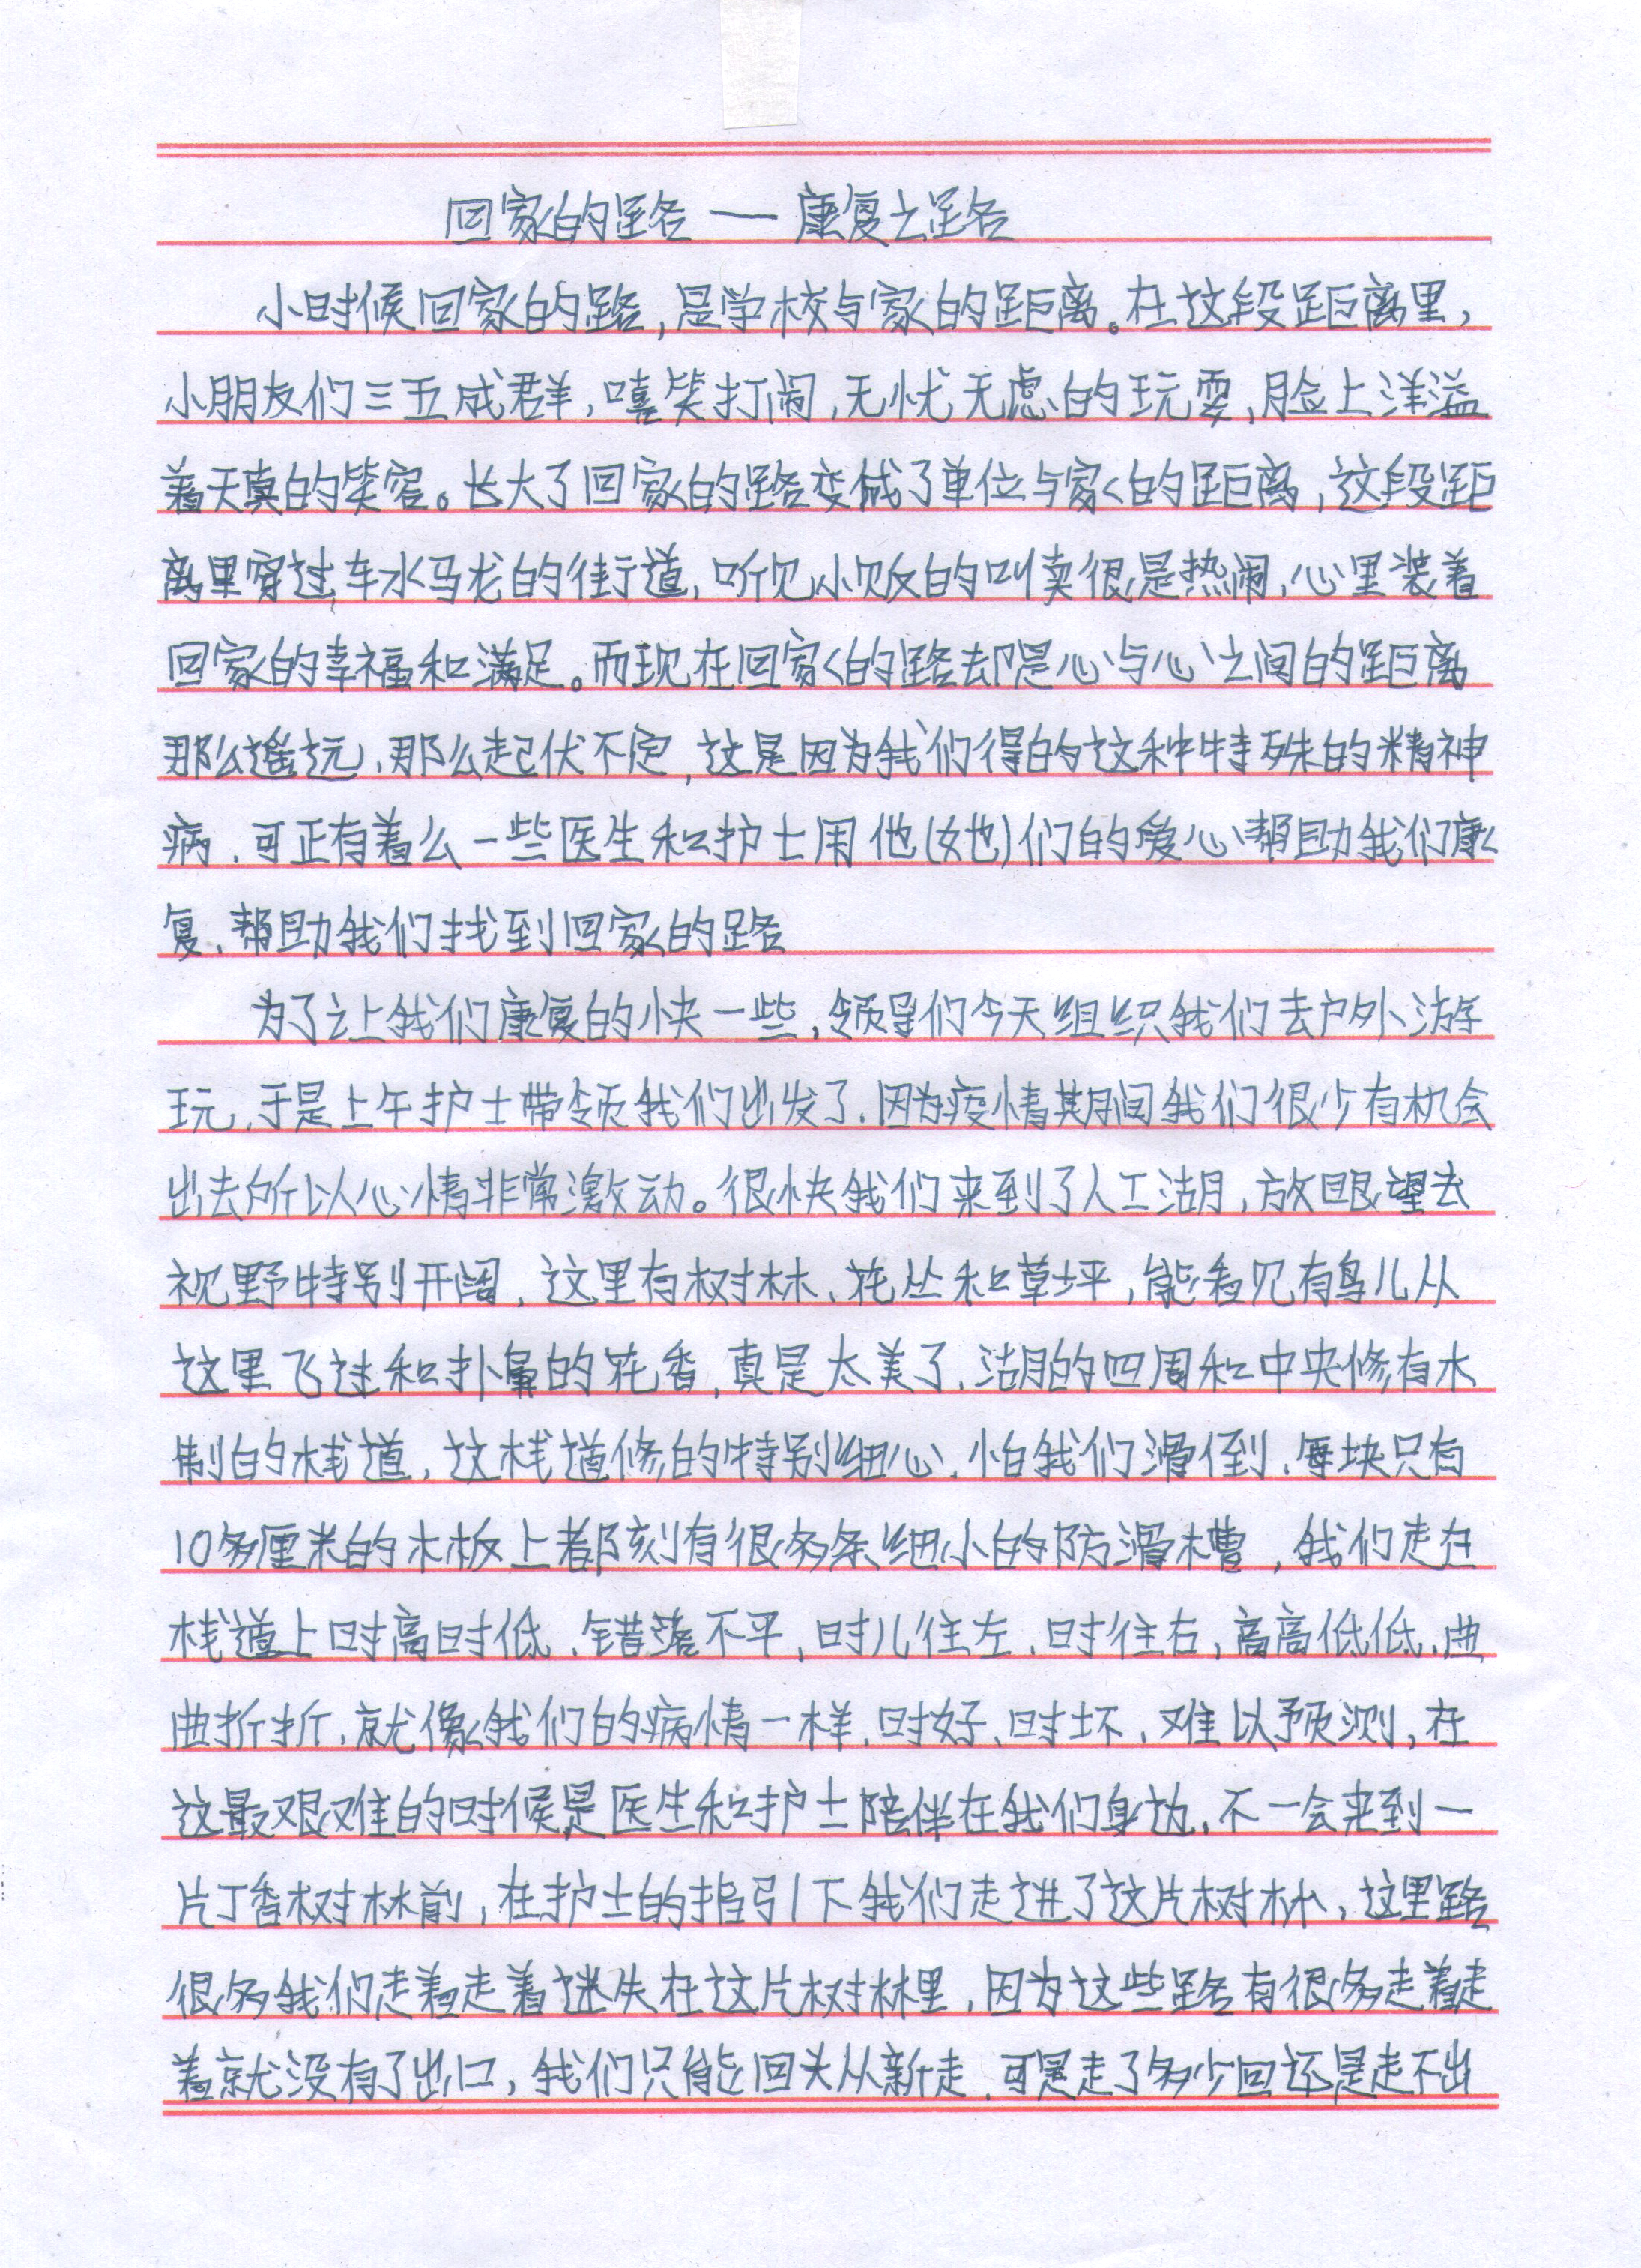 回家的路 — 康复之路
小时候回家的路,是学校与家的距离。在这段距离里,
小朋友们三五成群,嘻笑打闹,无忧无虑的玩耍,脸上洋溢
着天真的笑容。长大了回家的路变成了单位与家的距离,这段距
离里穿过车水马龙的街道,听见小贩的叫卖很是热闹,心里装着
回家的幸福和满足。而现在回家的路却是心与心之间的距离
那么遥远、那么起伏不定,这是因为我们得的这种特殊的精神
病、可正有着么一些医生和护士用他(她)们的爱心帮助我们康
复、帮助我们找到回家的路
为了让我们康复的快一些,领导们今天组织我们去户外游
玩、于是上午护士带领我们出发了、因为疫情期间我们很少有机会
出去所以心情非常激动。很快我们来到了人工湖,放眼望去
视野特别开阔、这里有树林、花丛和草坪,能看见有鸟儿从
这里飞过和扑鼻的花香,真是太美了、湖的四周和中央修有木
制的栈道,这栈道修的特别细心、怕我们滑倒、每块只有
10多厘米的木板上都刻有很多条细小的防滑槽,我们走在
栈道上时高时低、错落不平,时儿往左、时往右,高高低低、曲
曲折折、就像我们的病情一样、时好、时坏、难以预测,在
这最艰难的时候是医生和护士陪伴在我们身边、不一会来到一
片丁香树林前,在护士的指引下我们走进了这片树林,这里路
很多我们走着走着迷失在这片树林里,因为这些路有很多走着走
着就没有了出口,我们只能回头从新走、可是走了多少回还是走不出